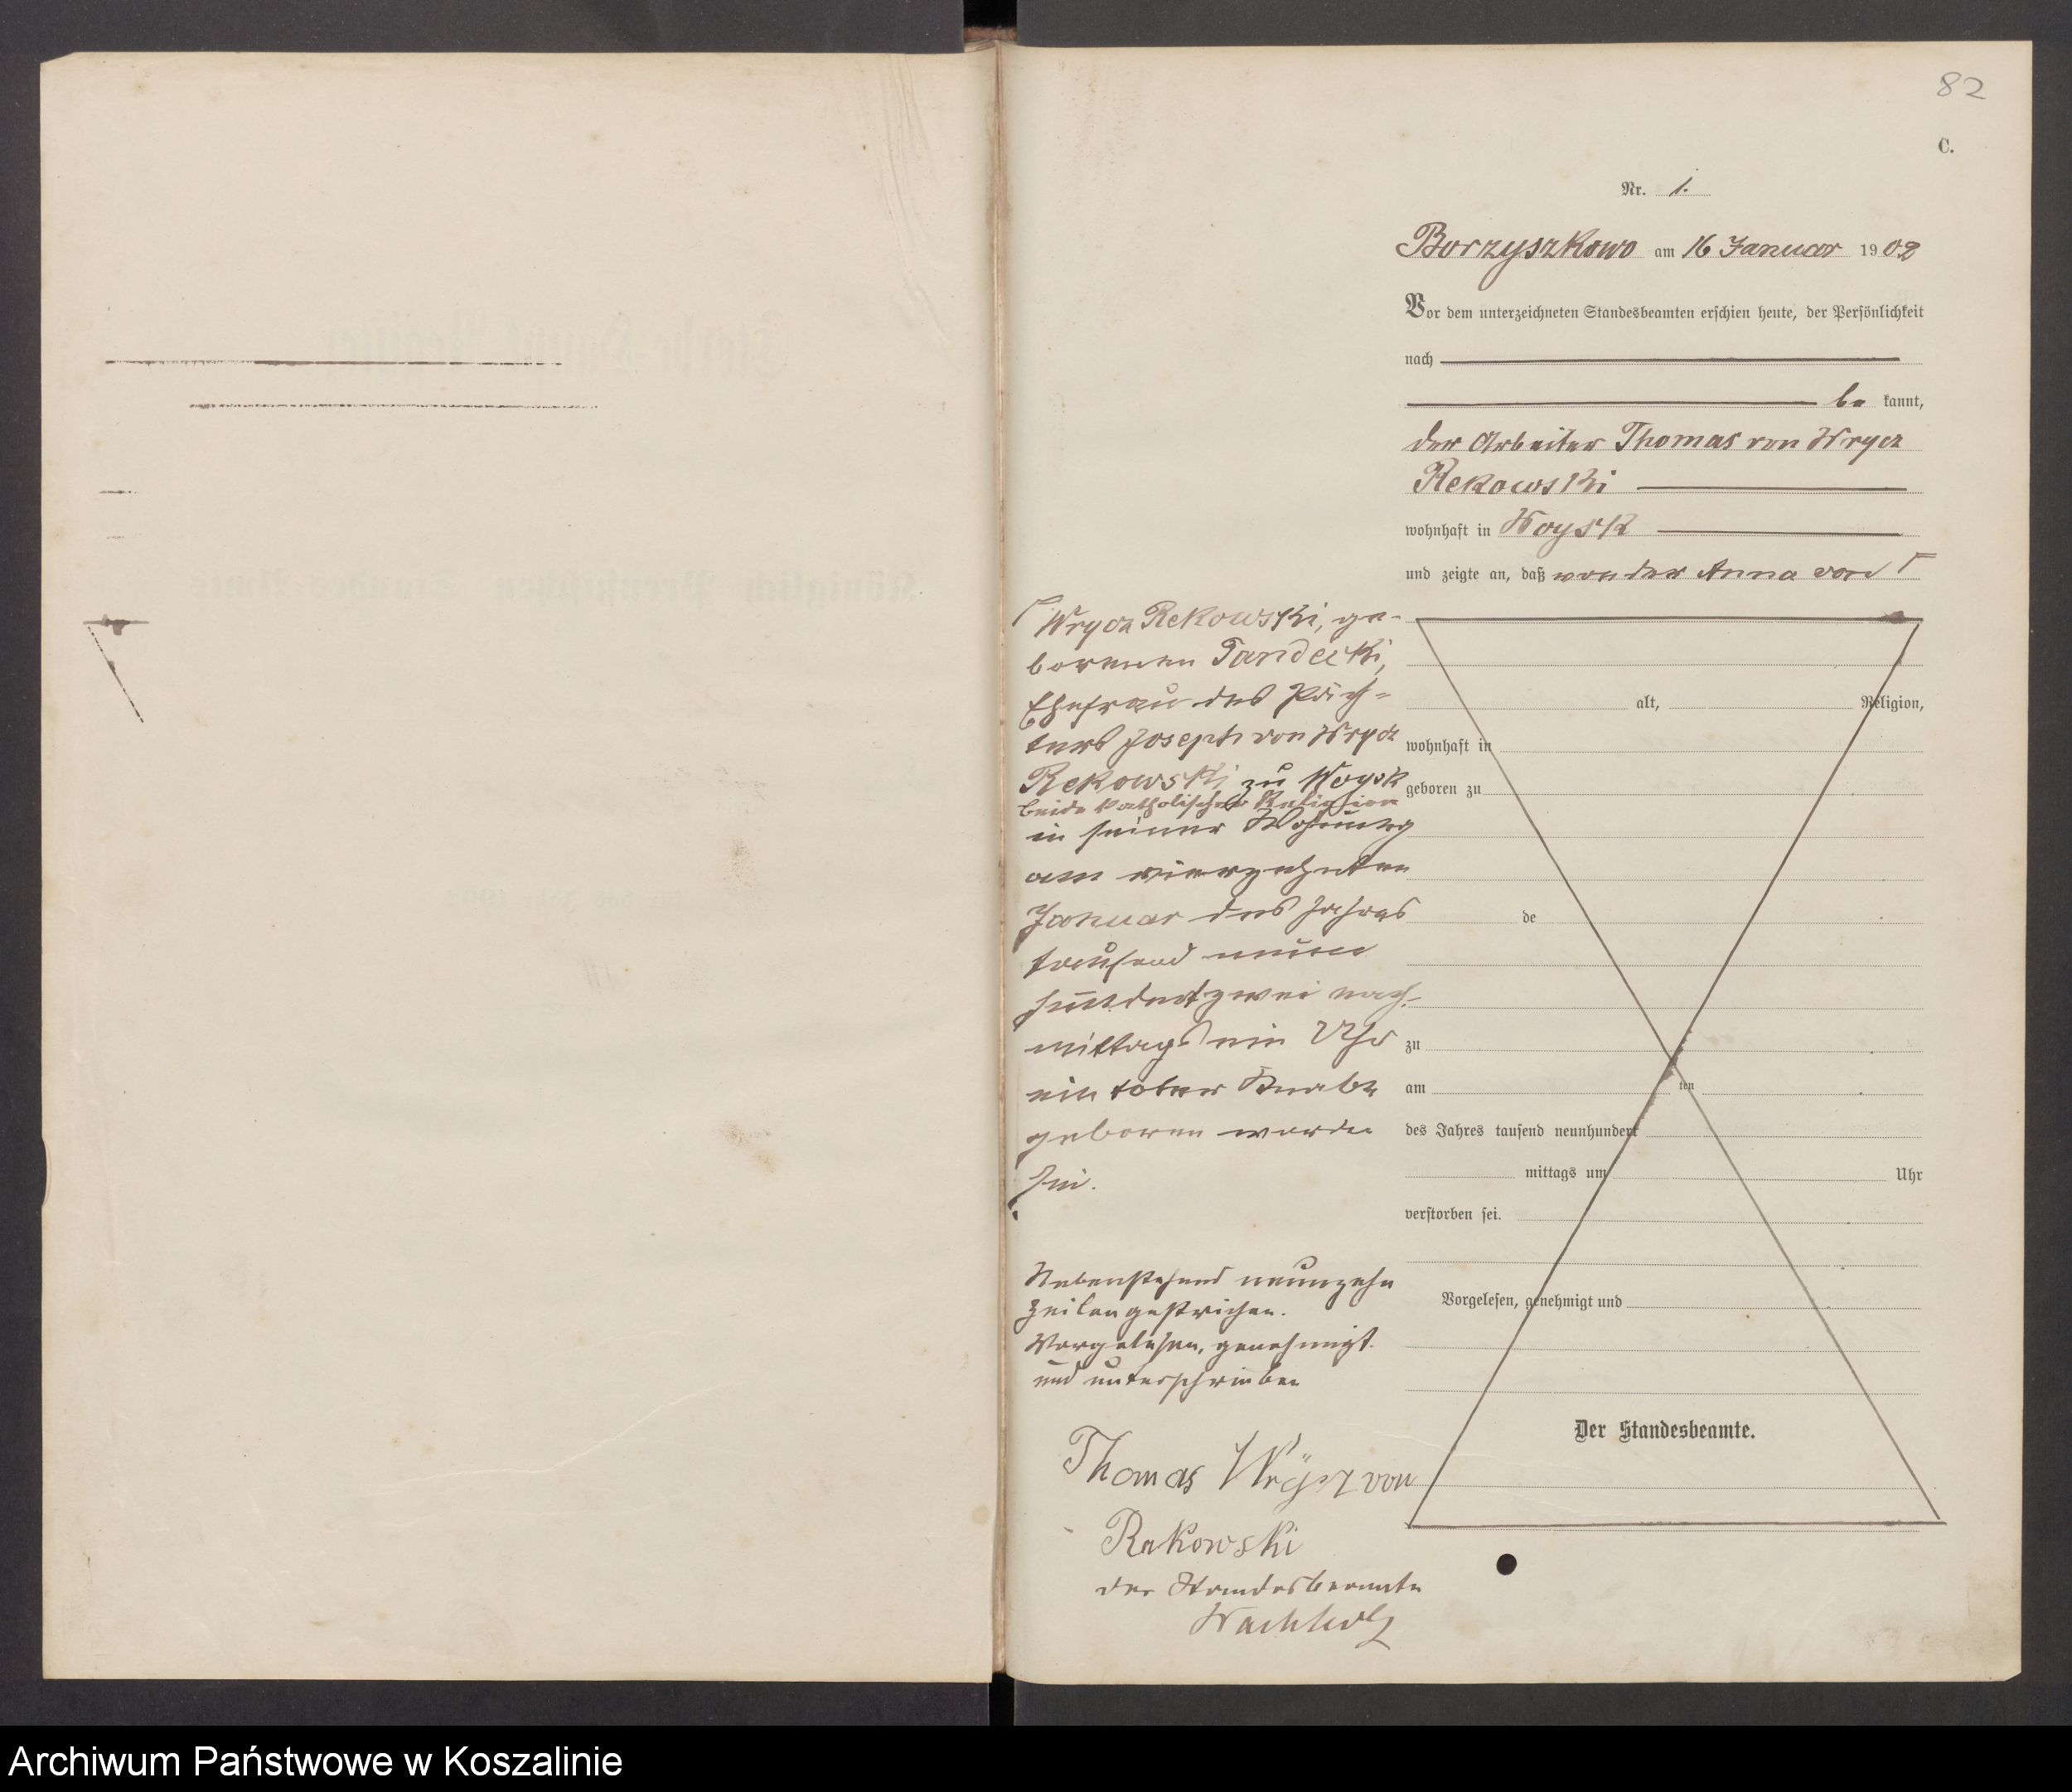 82
C.
Nr. 1.
Borzyszkowo am 16 Januar 1902
Vor dem unterzeichneten Standesbeamten erschien heute, der Persönlichkeit
nach
be kannt,
der Arbeiter Thomas von Wrycz
Rekowski
wohnhaft in Woysk
und zeigte an, daß von der Anna von
Wrycz Rekowski, ge-
borenen Tandecki,
Ehefrau des Päch-
ters Joseph von Wrycz
Rekowski zu Woysk
beide katholischer Religion
in seiner Wohnung
am vierzehnten
Januar des Jahres
tausend neun
hundertzwei nach-
mittags ein Uhr
ein toter Knabe
geboren worden
sei.
alt, Religion,
wohnhaft in
geboren zu
de
zu
am ten
des Jahres tausend neunhundert
mittags um Uhr
verstorben sei.
Vorgelesen, genehmigt und
Nebenstehend neunzehn
Zeilen gestrichen.
Vorgelesen, genehmigt
und unterschrieben
Der Standesbeamte.
Thomas Wrycz von
Rekowski
der Standesbeamte
Wachholz
Archiwum Państwowe w Koszalinie